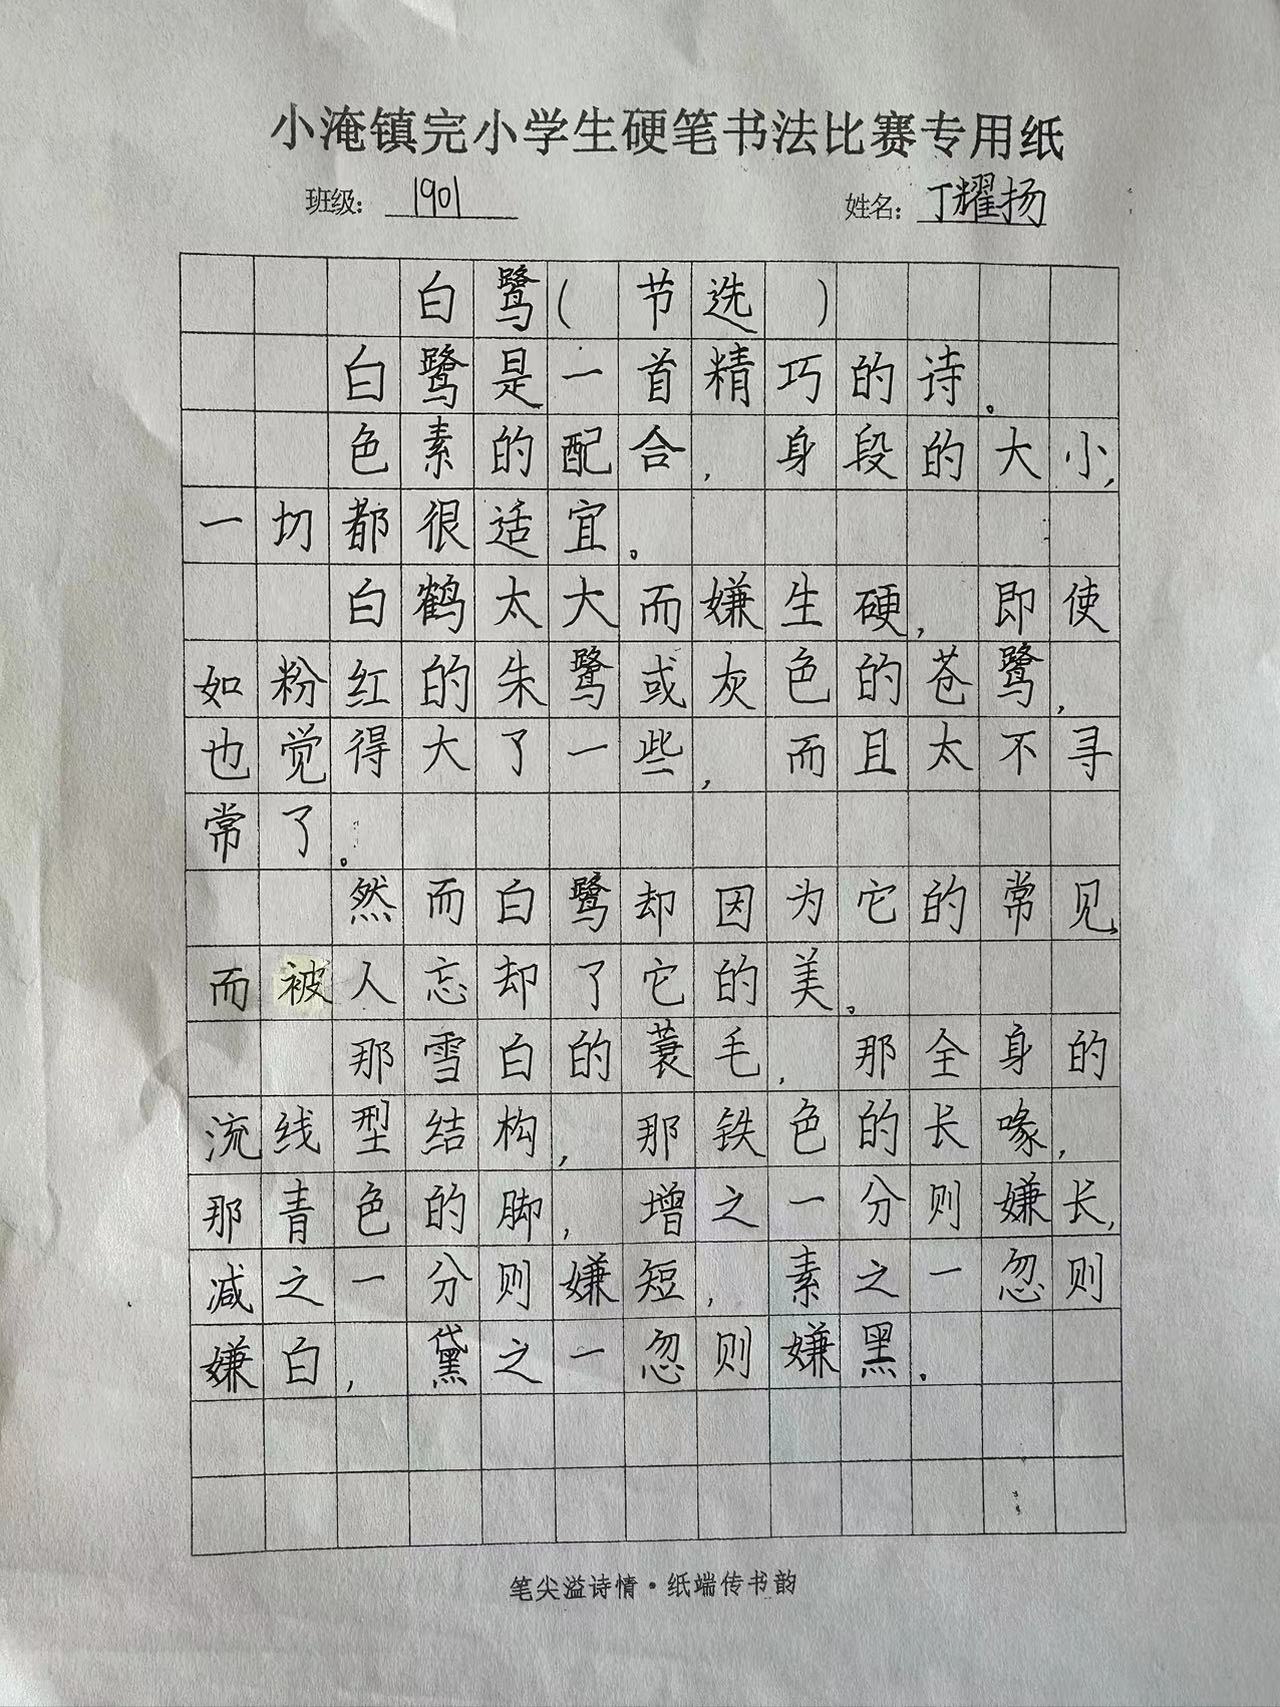 小淹镇完小学生硬笔书法比赛专用纸
班级：1901 姓名：丁耀扬
白鹭（节选）
白鹭是一首精巧的诗。
色素的配合，身段的大小，
一切都很适宜。
白鹤太大而嫌生硬，即使
如粉红的朱鹭或灰色的苍鹭，
也觉得大了一些，而且太不寻
常了。
然而白鹭却因为它的常见，
而被人忘却了它的美。
那雪白的蓑毛，那全身的
流线型结构，那铁色的长喙，
那青色的脚，增之一分则嫌长，
减之一分则嫌短，素之一忽则
嫌白，黛之一忽则嫌黑。
笔尖溢诗情·纸端传书韵